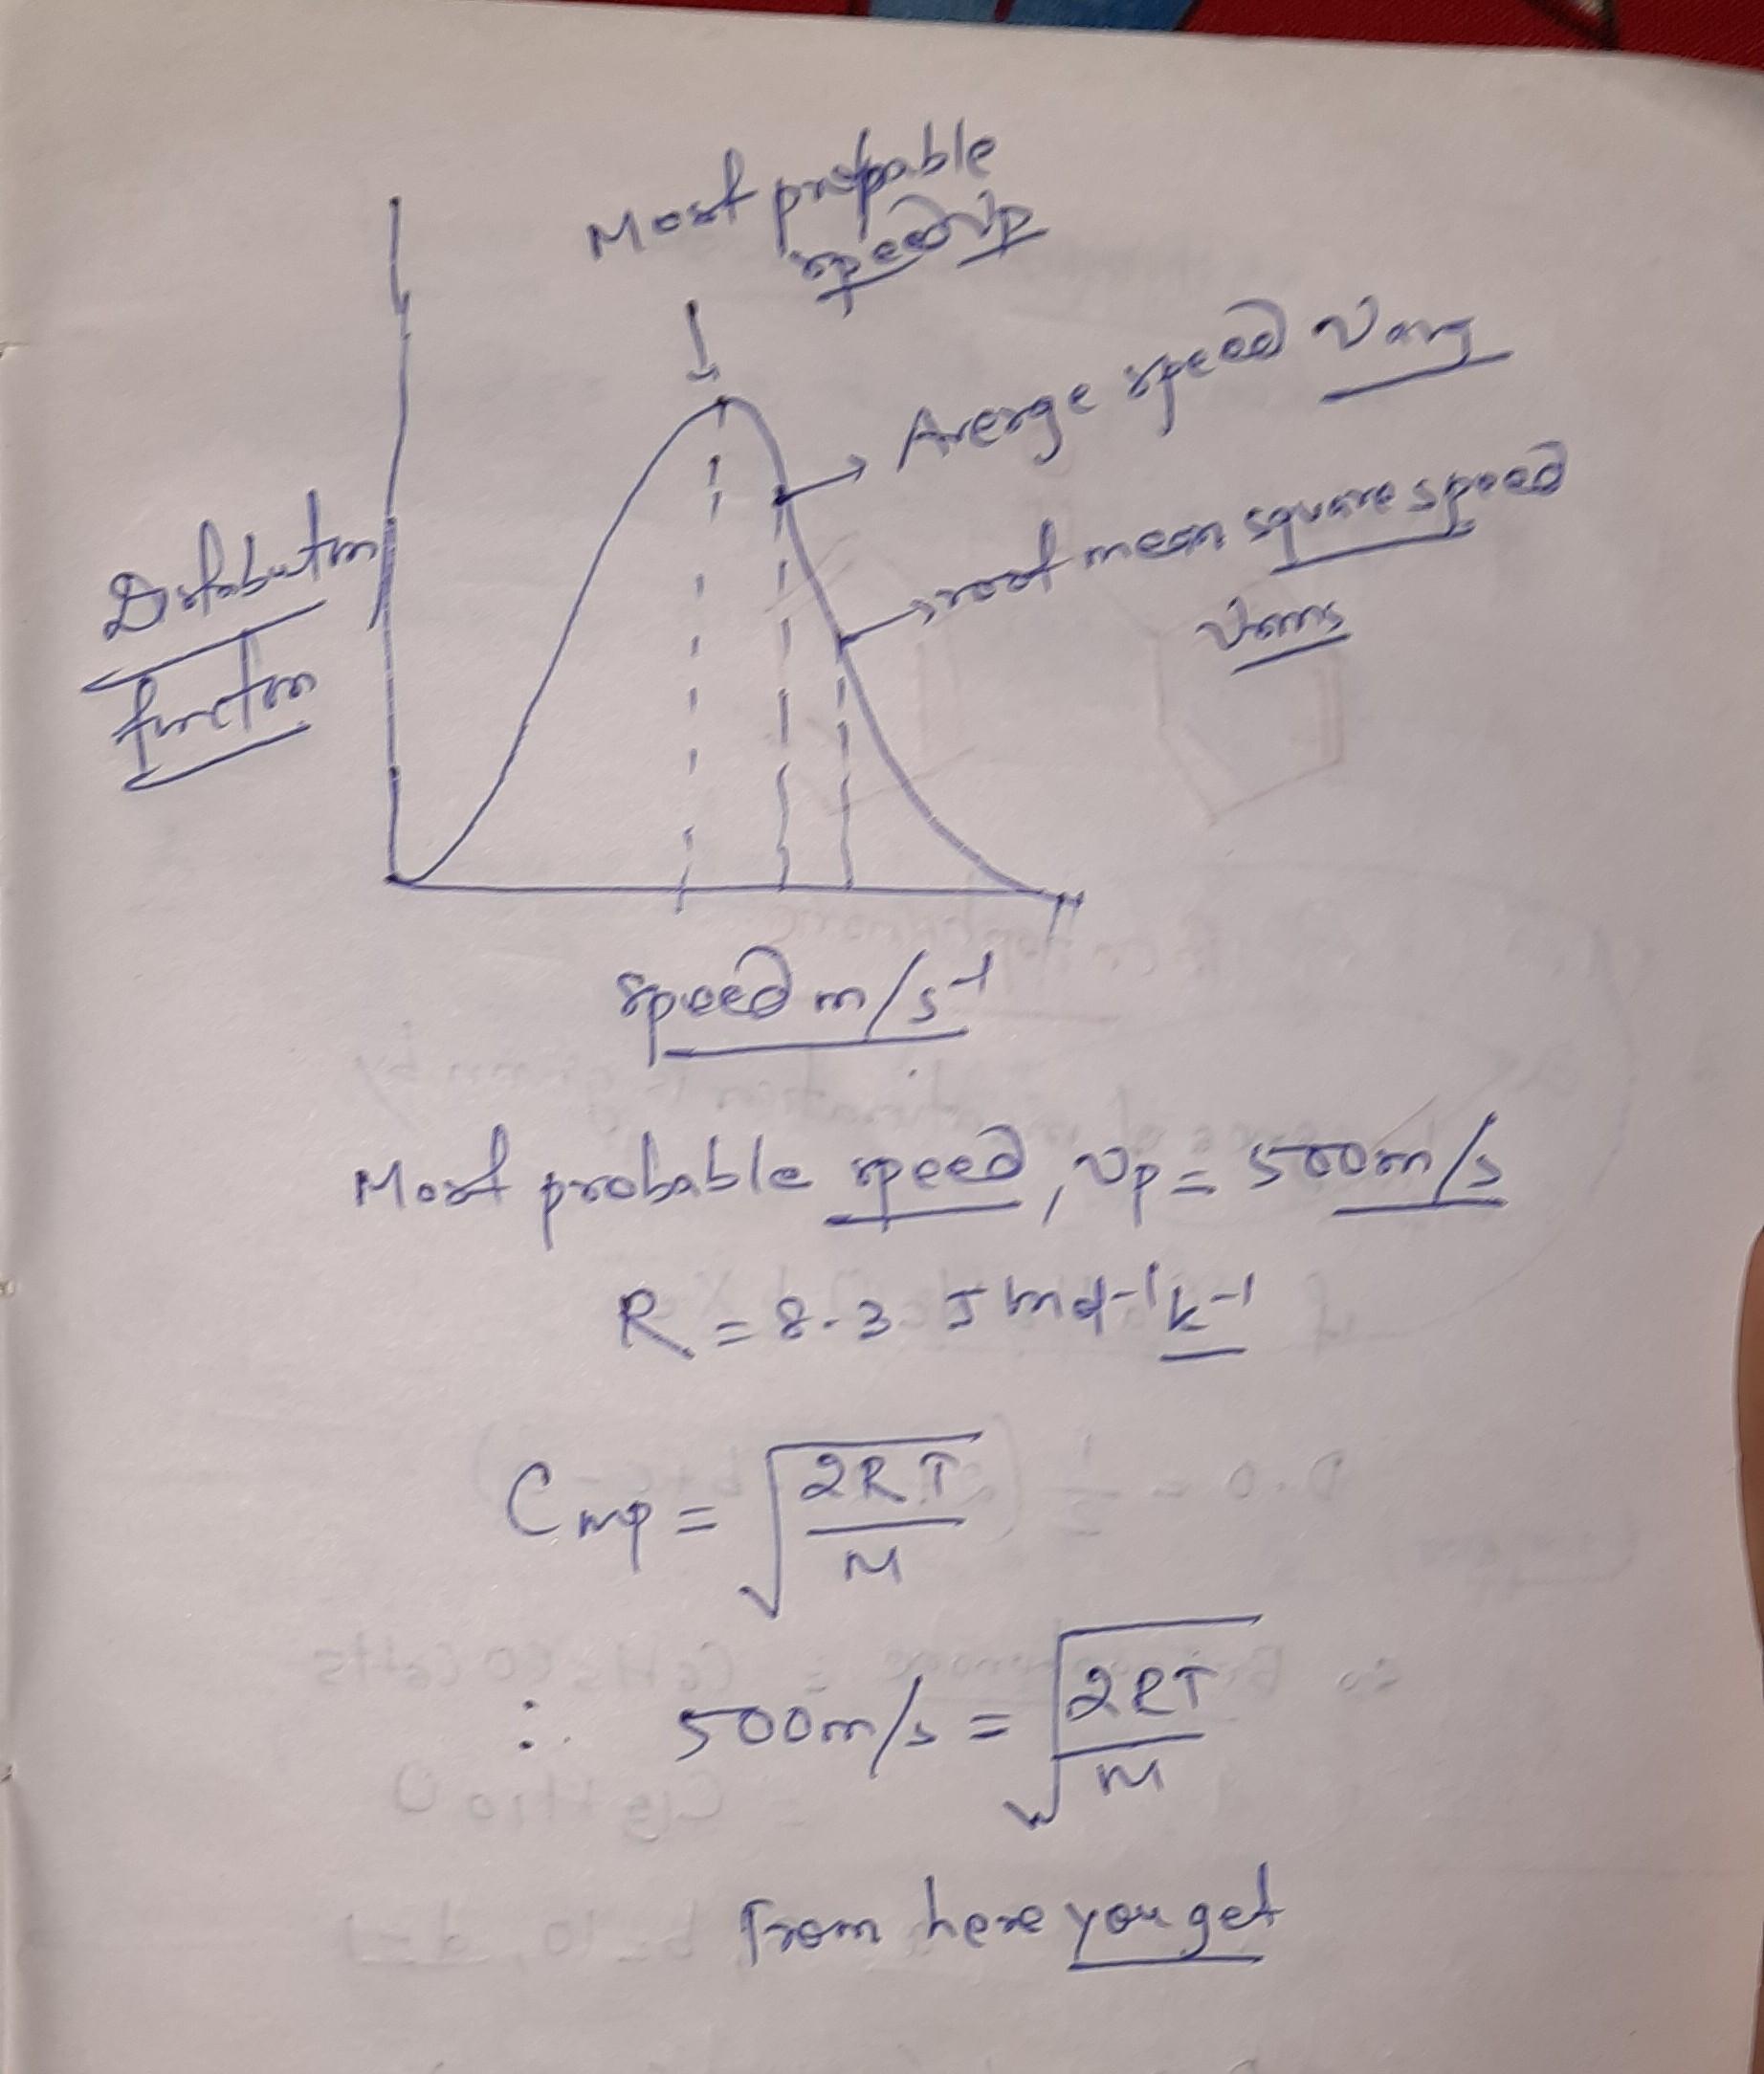 Most probable
speed vp
Average speed Vavg
root mean square speed
Vrms
Distribution
function
speed m/s⁻¹
Most probable speed, vp = 500m/s
R = 8.3 J mol⁻¹ k⁻¹
Cmp = √2RT/M
∴ 500m/s = √2RT/M
From here you get